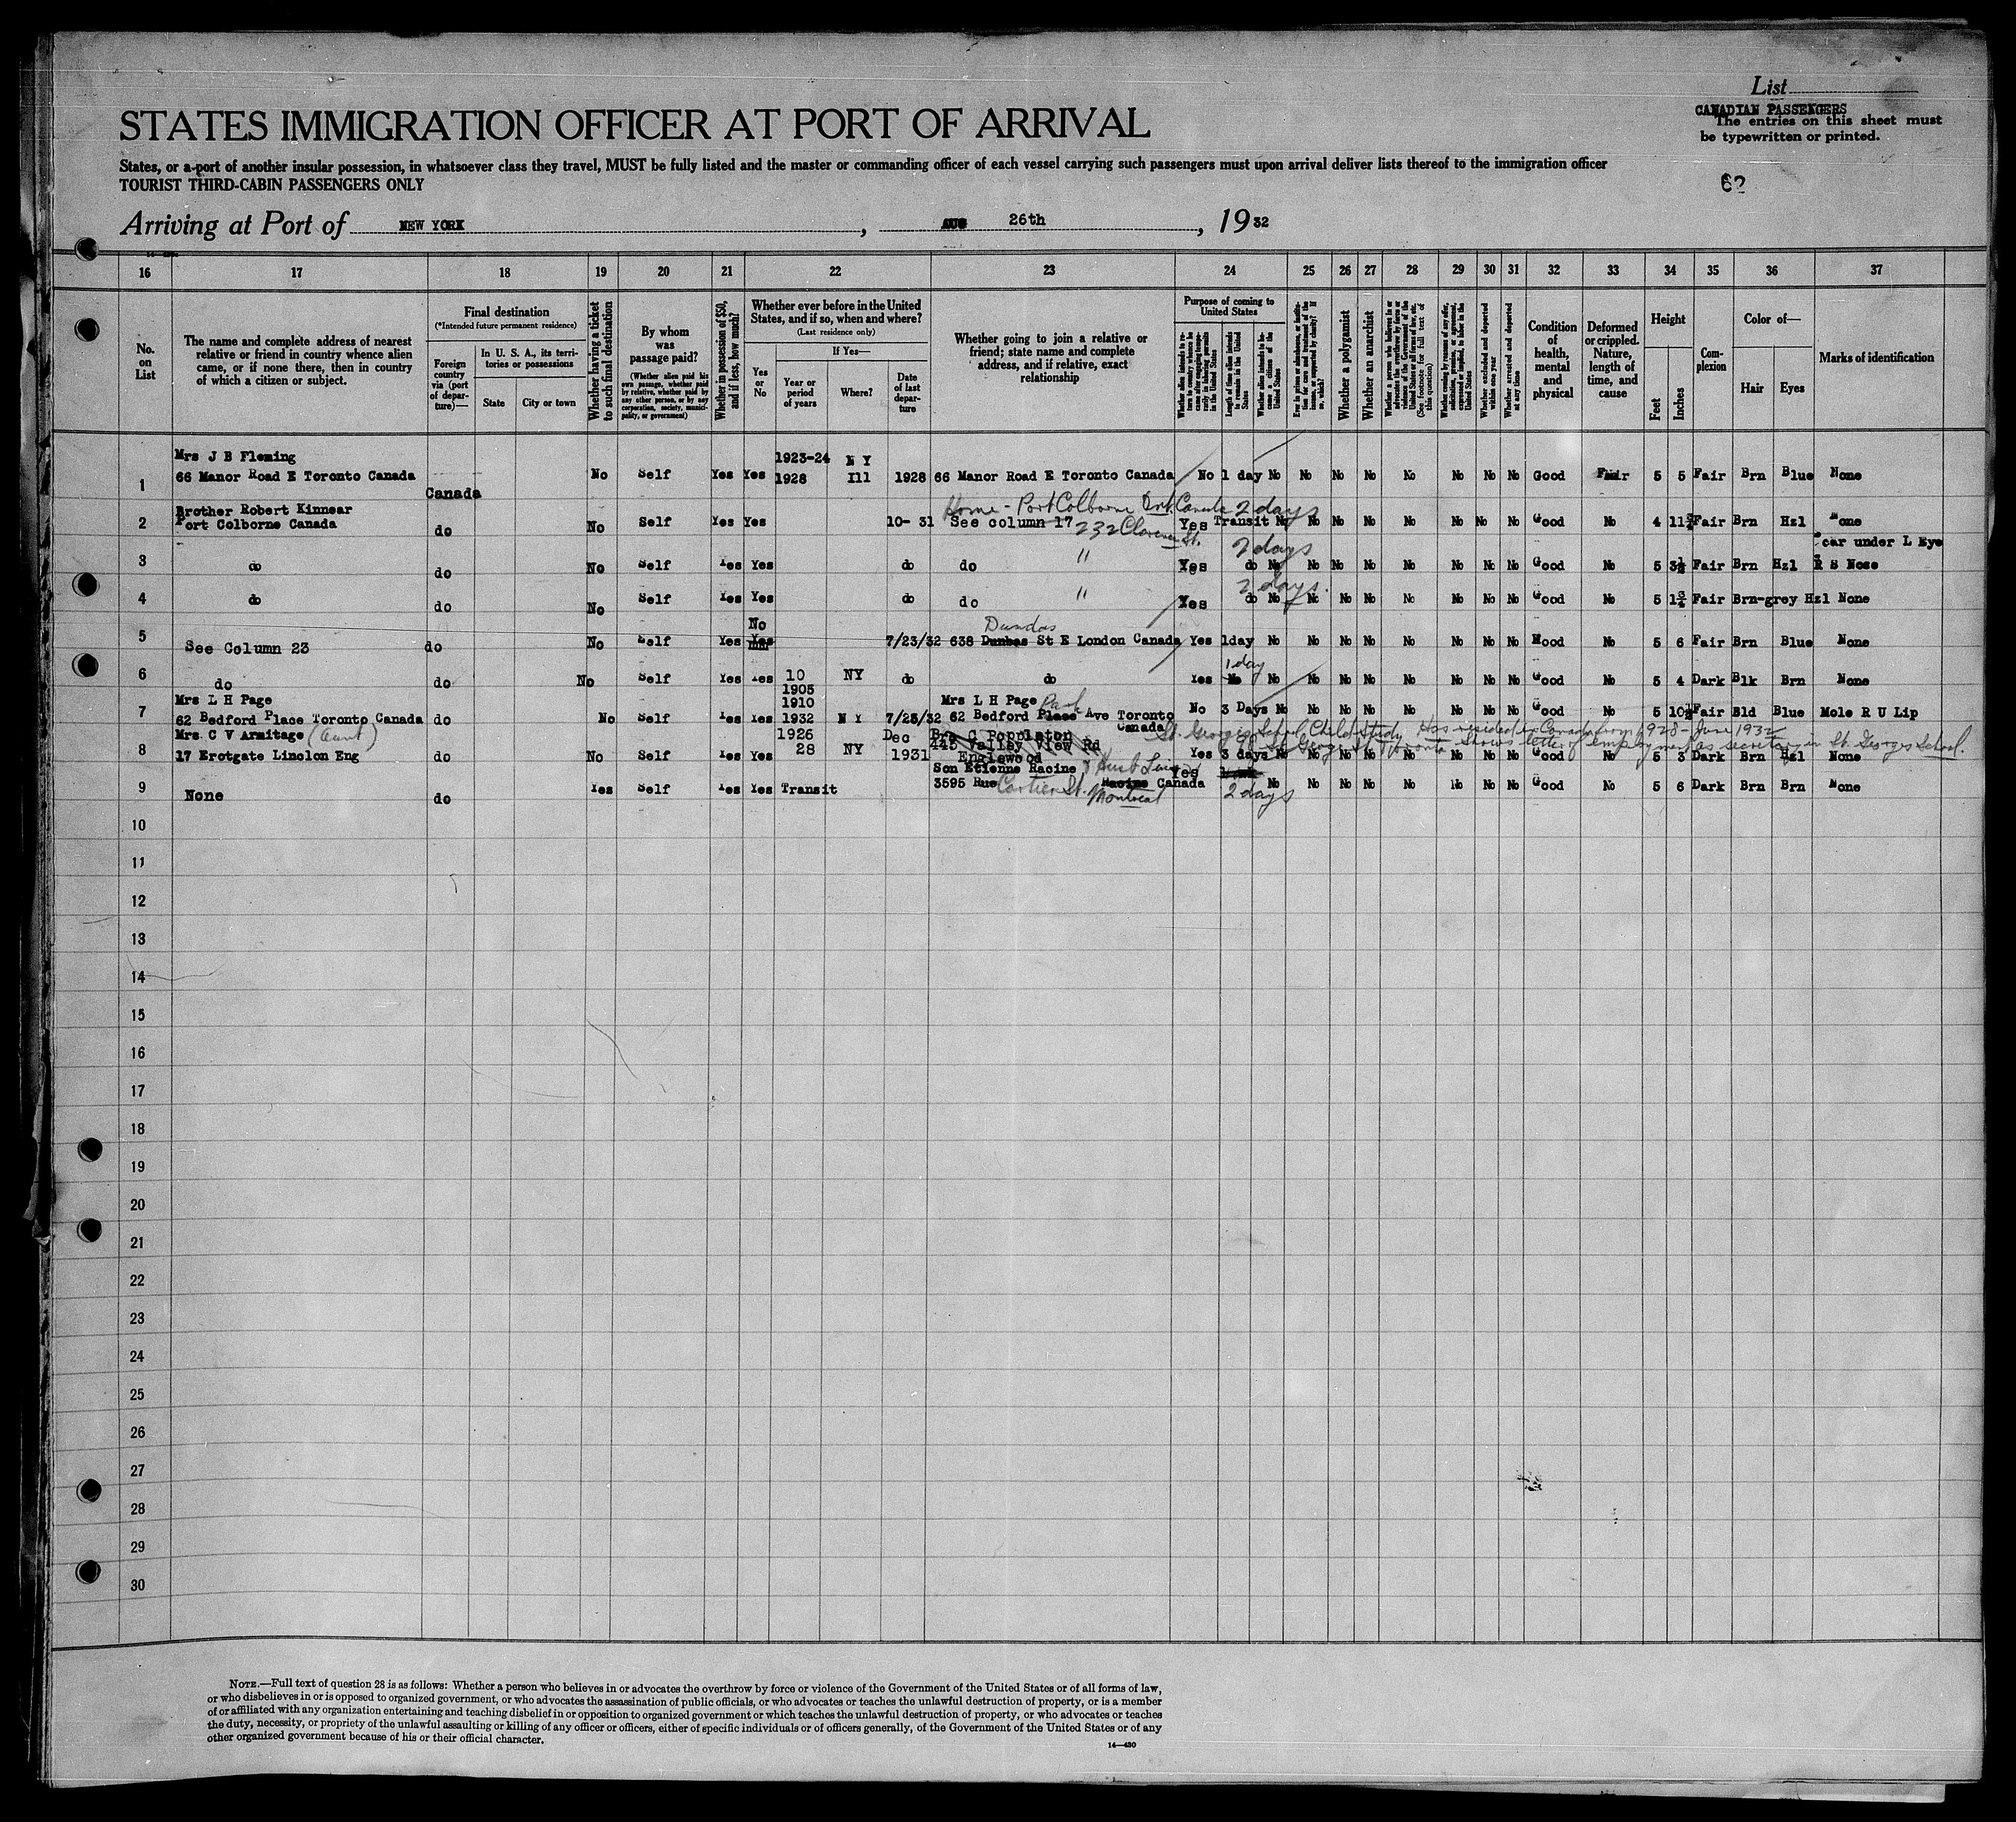 List
CANADIAN PASSENGERS
The entries on this sheet must
be typewritten or printed.
STATES IMMIGRATION OFFICER AT PORT OF ARRIVAL
States, or a port of another insular possession, in whatsoever class they travel, MUST be fully listed and the master or commanding officer of each vessel carrying such passengers must upon arrival deliver lists thereof to the immigration officer
TOURIST THIRD-CABIN PASSENGERS ONLY
62
Arriving at Port of NEW YORK, AUG 26th, 1932
16 17 18 19 20 21 22 23 24 25 26 27 28 29 30 31 32 33 34 35 36 37
No. on List
The name and complete address of nearest relative or friend in country whence alien came, or if none there, then in country of which a citizen or subject.
Final destination
(*Intended future permanent residence)
Foreign country via (port of departure)—
In U. S. A., its territories or possessions
State
City or town
Whether having a ticket to such final destination
By whom was passage paid?
(Whether alien paid his own passage, whether paid by relative, whether paid by any other person, or by any corporation, society, municipality, or government)
Whether in possession of $50, and if less, how much?
Whether ever before in the United States, and if so, when and where?
(Last residence only)
Yes or No
If Yes—
Year or period of years
Where?
Date of last departure
Whether going to join a relative or friend; state name and complete address, and if relative, exact relationship
Purpose of coming to United States
Length of time alien intends to remain in the United States
Whether alien intends to become a citizen of the United States
Whether a polygamist
Whether an anarchist
Whether excluded and deported within one year
Whether arrested and deported at any time
Condition of health, mental and physical
Deformed or crippled. Nature, length of time, and cause
Height
Feet
Inches
Complexion
Color of—
Hair
Eyes
Marks of identification
Mrs J B Fleming 1923-24 N Y
1 66 Manor Road E Toronto Canada Canada No Self Yes Yes 1928 Ill 1928 66 Manor Road E Toronto Canada No 1 day No No No No No No No No Good Fair 5 5 Fair Brn Blue None
Brother Robert Kinnear Home - Port Colborne Ont. Canada 2 days
2 Port Colborne Canada do No Self Yes Yes 10-31 See column 17 232 Clarence St. Yes Transit No No No No No No No No Good No 4 11¾ Fair Brn Hzl None
2 days Scar under L Eye
3 do do No Self Yes Yes do do " Yes do No No No No No No No No Good No 5 3½ Fair Brn Hzl R S Nose
2 days
4 do do No Self Yes Yes do do " Yes do No No No No No No No No Good No 5 1¾ Fair Brn-grey Hzl None
No Dundas
5 See Column 23 do No Self Yes Yes 7/23/32 638 Dunbas St E London Canada Yes 1day No No No No No No No No Mood No 5 6 Fair Brn Blue None
1 day
6 do do No Self Yes Yes 10 NY do do Yes No No No No No No No No No Good No 5 4 Dark Blk Brn None
Mrs L H Page 1905 1910 Mrs L H Page Park
7 62 Bedford Place Toronto Canada do No Self Yes Yes 1932 N Y 7/23/32 62 Bedford Place Ave Toronto Canada No 3 Days No No No No No No No No Good No 5 10½ Fair Bld Blue Mole R U Lip
Mrs C V Armitage (Aunt) 1926 Dec Bro C Poppleton St. George's School, Child Study Has resided in Canada from 1928 - June 1932
445 Valley View Rd St. George St. Toronto Shows letter of employment as secretary in St. Georges School.
8 17 Erotgate Linclon Eng do No Self Yes Yes 28 NY 1931 Englewood Yes 3 days No No No No No No No No Good No 5 3 Dark Brn Hzl None
Son Etienne Racine Yes
9 None do Yes Self Yes Yes Transit 3595 Rue Cartier St. Montreal Canada 2 days No No No No No No No No Good No 5 6 Dark Brn Brn None
10
11
12
13
14
15
16
17
18
19
20
21
22
23
24
25
26
27
28
29
30
NOTE.—Full text of question 28 is as follows: Whether a person who believes in or advocates the overthrow by force or violence of the Government of the United States or of all forms of law,
or who disbelieves in or is opposed to organized government, or who advocates the assassination of public officials, or who advocates or teaches the unlawful destruction of property, or is a member
of or affiliated with any organization entertaining and teaching disbelief in or opposition to organized government or which teaches the unlawful destruction of property, or who advocates or teaches
the duty, necessity, or propriety of the unlawful assaulting or killing of any officer or officers, either of specific individuals or of officers generally, of the Government of the United States or of any
other organized government because of his or their official character.
14—430